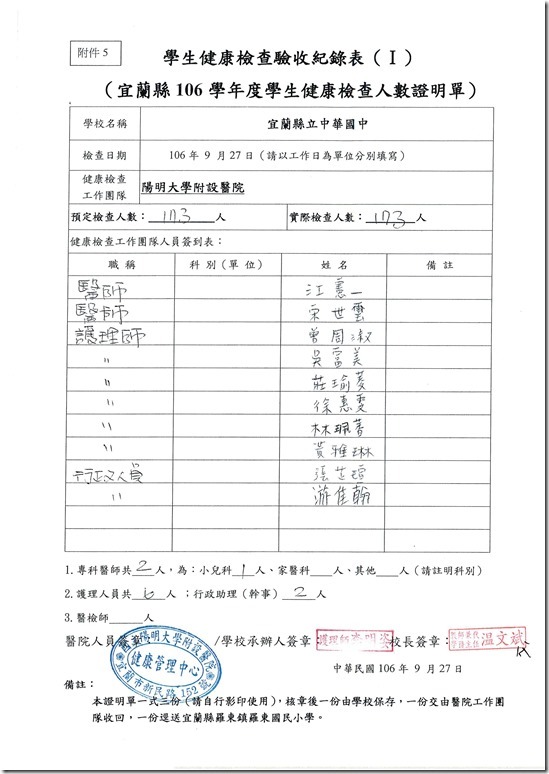 附件 5
學生健康檢查驗收紀錄表（I）
（宜蘭縣 106 學年度學生健康檢查人數證明單）
學校名稱 宜蘭縣立中華國中
檢查日期 106 年 9 月 27 日（請以工作日為單位分別填寫）
健康檢查工作團隊 陽明大學附設醫院
預定檢查人數：173人 實際檢查人數：173人
健康檢查工作團隊人員簽到表：
職稱 科別（單位） 姓名 備註
醫師 江憲一
醫師 宋世雲
護理師 曾周淑
〃 吳富美
〃 莊瑜菱
〃 徐惠雯
〃 林珮菁
〃 黃雅琳
行政人員 張芷瑄
〃 游佳翰
1.專科醫師共 2 人，為：小兒科 1 人、家醫科___人、其他____人（請註明科別）
2.護理人員共 6 人；行政助理（幹事） 2 人
3.醫檢師_____人
醫院人員簽章 /學校承辦人簽章： 校長簽章：
陽明大學附設醫院
健康管理中心
宜蘭市新民路152號
護理師
溫文斌
中華民國 106 年 9 月 27 日
備註：
本證明單一式三份（請自行影印使用），核章後一份由學校保存，一份交由醫院工作團
隊收回，一份逕送宜蘭縣羅東鎮羅東國民小學。